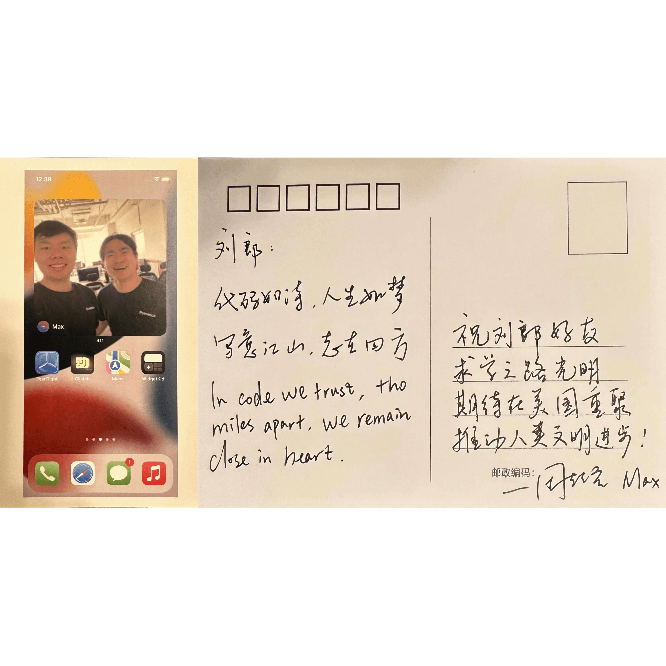 12:38
Max
刘郎：
代码如诗，人生如梦
写意江山，志在四方
In code we trust, tho
miles apart, we remain
close in heart.
祝刘郎好友
求学之路光明
期待在美国重聚
推动人类文明进步！
邮政编码：
Max